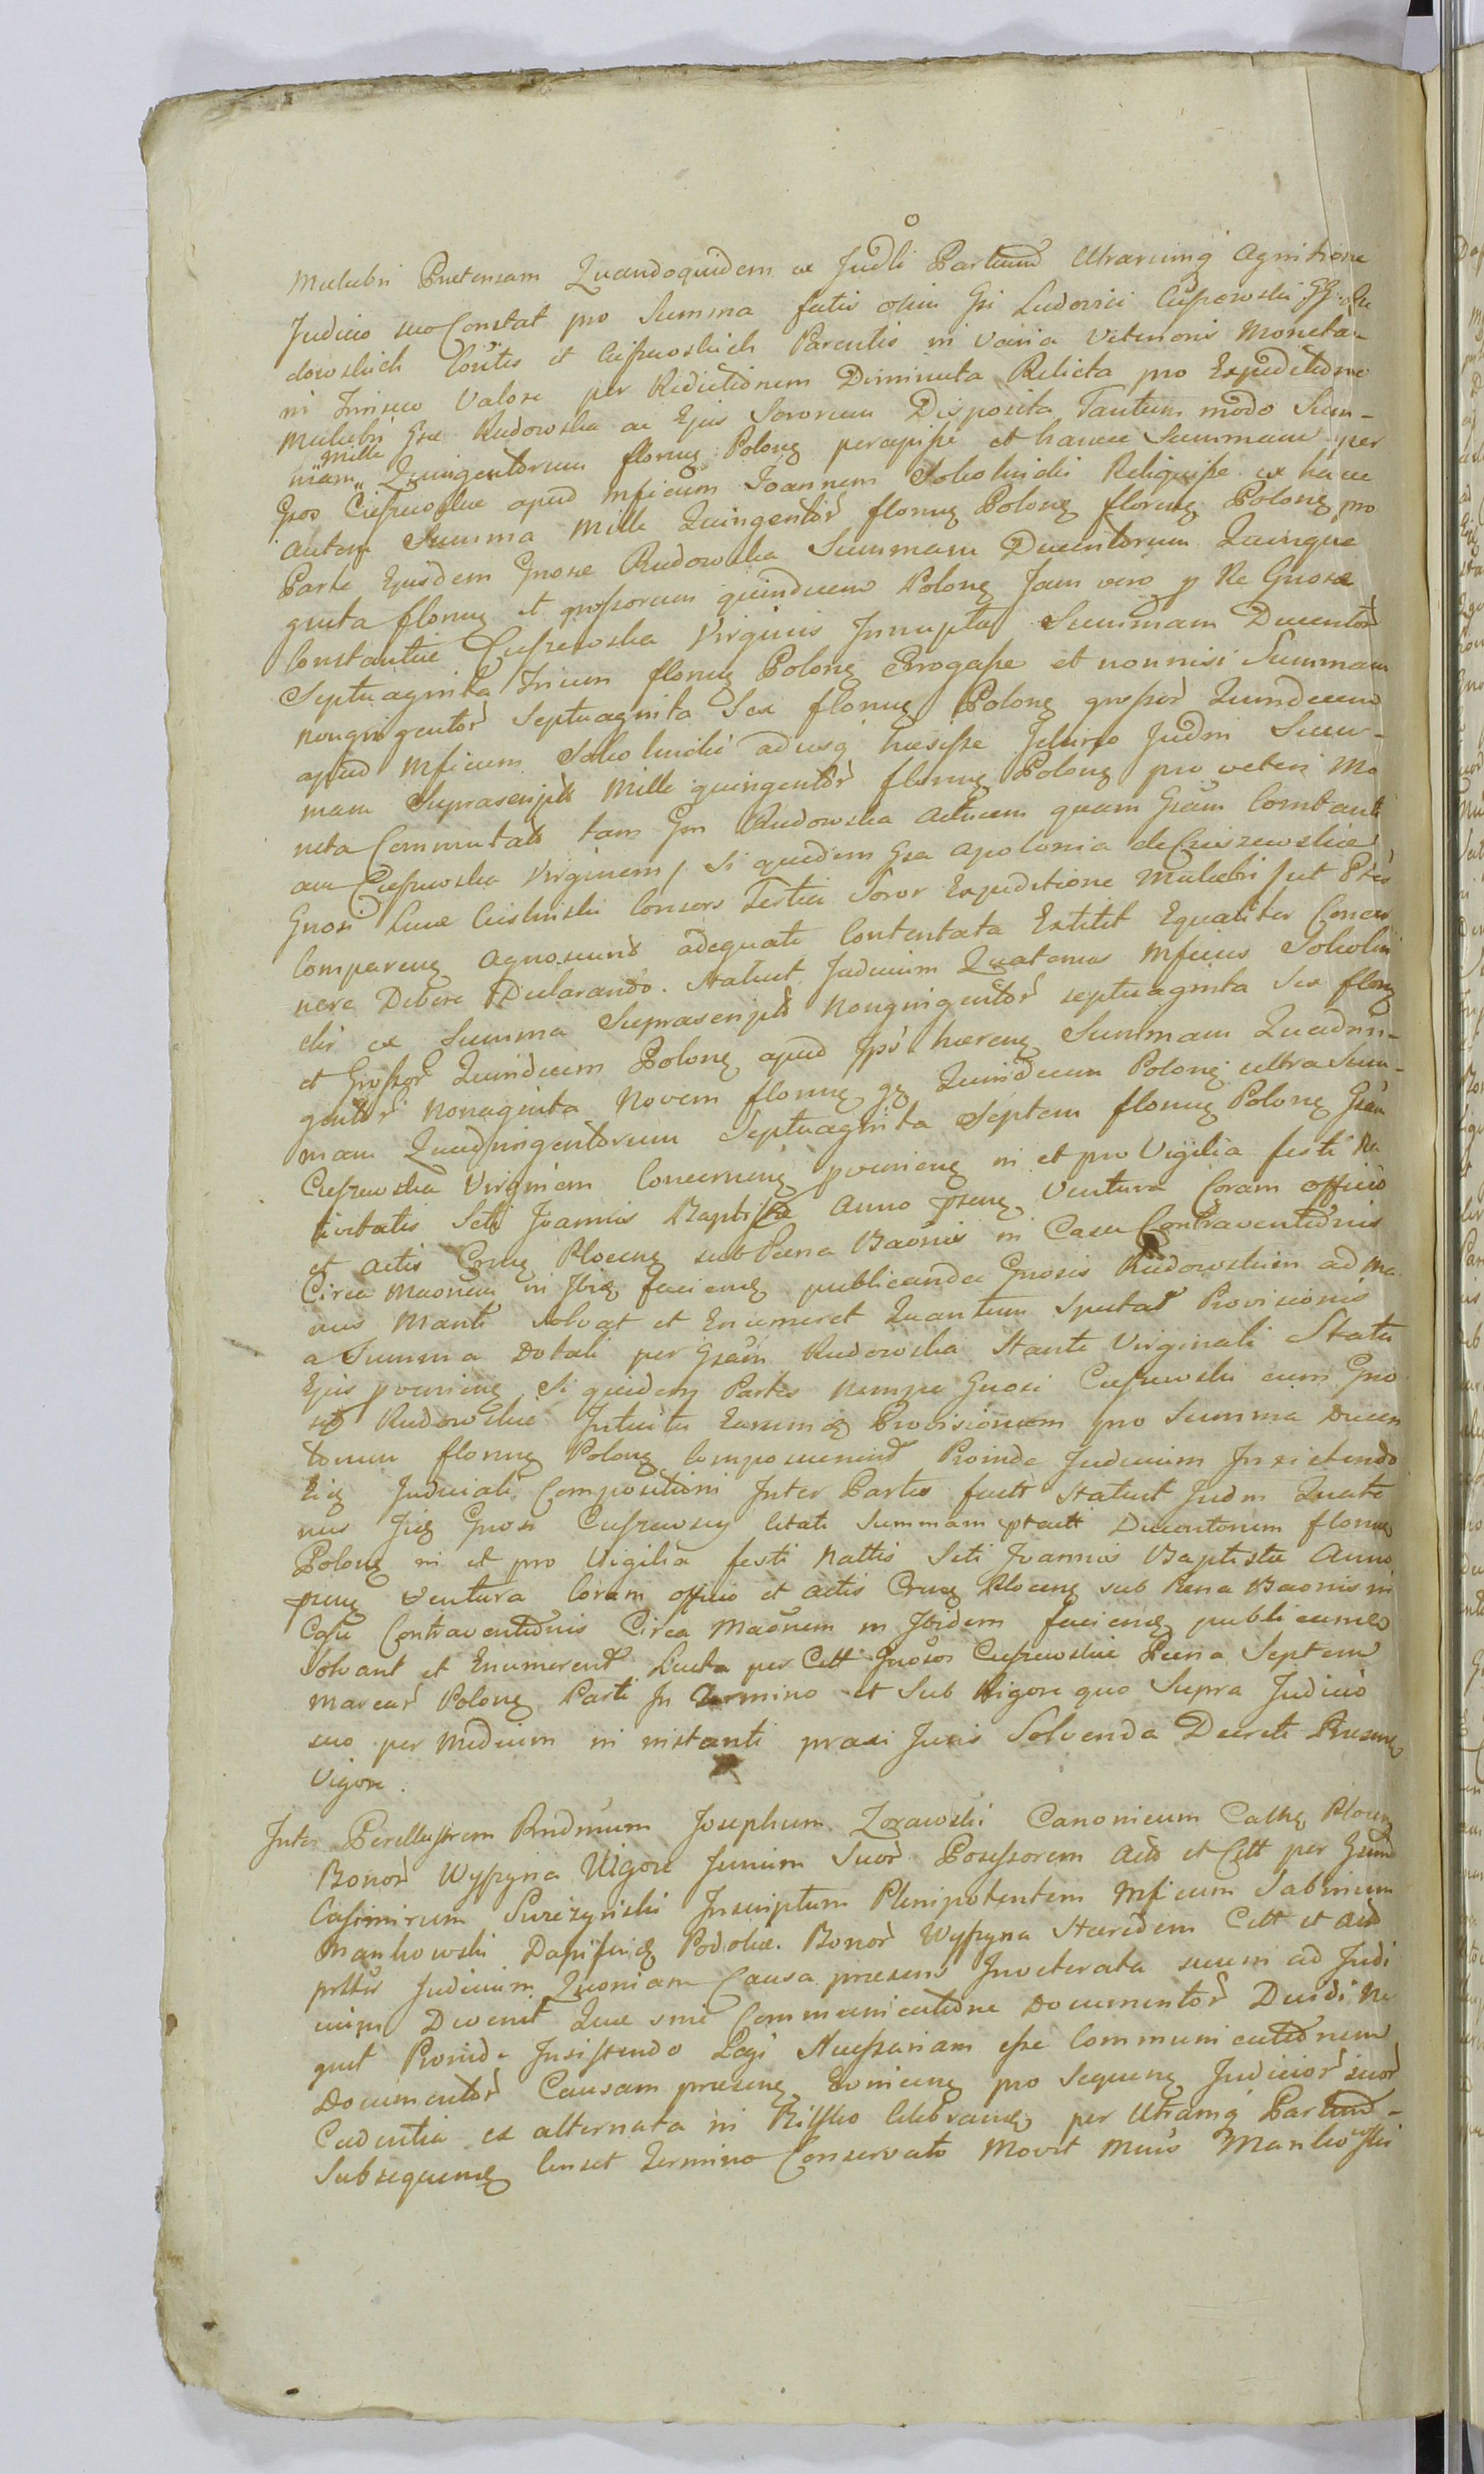 Muliebri Prætensam Quandoquidem ex Judli Partium Utrarumq Agnitione
Judicio suo Constat pro Summa fatis olim Gsi Ludovici Ciszewski GG. Ru
dowskich Contis et Ciszewskich Parentis in varia veterioris Moneta
ni Valore per Reductionem Diminuta Relicta pro Expeditione
Muliebri Gsæ Rudowska ac Ejus Sororum Disposita Tantum modo Sum-
mam Mille Quingentorum floreng Polong percepisse et hancce Summam per
Gsos Ciszewskie apud Mficum Joannem Sokolnicki Reliquisse ex hacce
autem Summa Mille Quingentor floreng Polong floreng Polong pro
Parte Ejusdem Gnosæ Rudowska Summam Ducentorum Quinqua
ginta floreng et grossorum quindecem Polong Jam vero p Re Gnosæ
Constantiæ Ciszewska Virginis Innupta Summam Ducentor
Septuaginta Trium floreng Polong Erogasse et nonnisi Summam
nongingentor Septuaginta Sex floreng Polong grossor Quindecem
apud Mficum Sokolnicki adusq hæsisse Judm Sum-
mam Suprascript Mille quingentor floreng Polong pro veteri Mo
neta Commutat tam Gsm Rudowska Actricem quam Gsam Constanti
am Ciszewska Virginem / Si quidem Gsa Apolonia de Ciszewskie
Gnosi Lucæ Consors Tertia Soror Expeditione Muliebri / ut Ptes
Compareng agnoscunt adequate Contentata Extitit Equaliter Concer
nere Debere Declarando. Statuit Judicium Quatenus Mficus Sokolni
cki ex Summa Suprascript Nongingentor septuaginta Sex floreng
et Grossor Quindecem Polong apud Ipsu hæreng Summam Quadrin-
gentor Nonaginta Novem floreng gg Quindecem Polong ultra Sum-
mam Quadringentorum Septuaginta Septem floreng Polong Gsam
Ciszewska Virginem Concerneng provenieng in et pro Vigilia festi Na
tivitatis Scti Joannis Baptistæ Anno præng Ventura Coram officio
et actis Crng Ploceng sub Pæna Baonis in Casu Contraventionis
Circa Maonem in Ibiq facieng publicanda Gnosis Rudowskim ad Ma
nus Manti solvat et Enumeret Quantum Spectat Provisionis
a Summa Dotali per Gsam Rudowska Stante Virginali Statu
Ejus provenieng, Si quidem Partes nempe Gnosi Ciszewski cum Gno
sis Rudowskie Intuitu Earumq Provisionum pro Summa Ducen
torum floreng Polong Composuerunt Proinde Judicium Insistendo
Judiciali Compositioni Inter Partes factæ Statuit Judm Quate
nus Gnosi Ciszewscy Citati Summam Ducentorum floreng
Polong in et pro Vigilia festi Nattis Scti Joannis Baptistæ Anno
præng Ventura Coram officio et actis Crng Ploceng sub Pæna Baonis in
Casu Contraventionis Circa Maonem in Ibidem facieng publicanda
Solvant et Enumerent Lucta per Citt Gnosos Ciszewskie Pæna Septem
Marcar Polong Parti In Termino et Sub Rigore quo Supra Judicio
suo per Medium in instanti praxi Juris Solvenda Decreti Præseng
Vigore.
Inter Perillustrem Rndmum Josephum Zorawski Canonicum Cathg Ploceng
Bonor Wyszyna Vigore Jurium Suor Possessorem Act et Citt per Gsum
Casimirum Inscriptum Plenipotentem Mficum Sabinum
Mankowski Dapifeng Podoliæ. Bonor Wyszyna Hæredem Citt et Act
prttis Judicium Quoniam Causa præsens Inveterata suum ad Judi
cium Devenit Quæ sine Communicatione Documentor Diudi Ne
quit Proinde Insistendo Legi Necessariam esse Communicationem
Documentor Causam præseng Evinceng pro Sequeng Judicior suor
Cadentia ex alternata in celebrang per Utramq Partium
Subsequeng Censet Termino Conservato Movit Mcus Mankowski